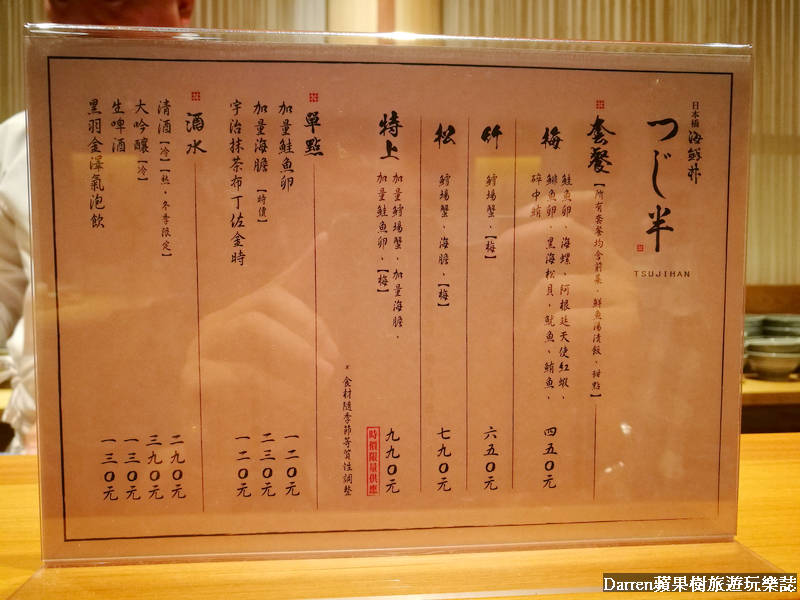 日本橋
海鮮丼
つじ半
TSUJIHAN
套餐【所有套餐均含前菜、鮮魚湯漬飯、甜點】
梅
鮭魚卵、海螺、阿根廷天使紅蝦、
鯡魚卵、黑海松貝、魷魚、鮪魚、
碎中鮪
四五〇元
竹
鱈場蟹、【梅】
六五〇元
松
鱈場蟹、海膽、【梅】
七九〇元
特上
加量鱈場蟹、加量海膽、
加量鮭魚卵、【梅】
九九〇元
時價限量供應
*食材隨季節等質性調整
單點
加量鮭魚卵
一二〇元
加量海膽【時價】
二三〇元
宇治抹茶布丁佐金時
一二〇元
酒水
清酒【冷】【熱,冬季限定】
二九〇元
大吟釀【冷】
三九〇元
生啤酒
一三〇元
黑羽金澤氣泡飲
一三〇元
Darren蘋果樹旅遊玩樂誌